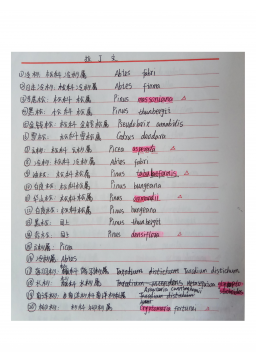 拉丁文
①冷杉: 松科 冷杉属 Abies fabri
②日本冷杉: 松科 冷杉属 Abies firma
③马尾松: 松科 松属 Pinus massoniana △
④黑松: 松科 松属 Pinus thunbergii
⑤金钱松: 松科 金钱松属 Pseudolarix amabilis
⑥雪松: 松科 雪松属 Cedrus deodara
⑦云杉: 松科 云杉属 Picea asperata △
⑧冷杉: 松科 冷杉属 Abies fabri
⑨油松: 松科 松属 Pinus tabuliformis △
⑩白皮松: 松科 松属 Pinus bungeana
⑪华山松: 松科 松属 Pinus armandii △
⑫白皮松: 松科 松属 Pinus bungeana
⑬黑松: 同上 Pinus thunbergii
⑭赤松: 同上 Pinus densiflora △
⑮云杉属: Picea
⑯冷杉属: Abies
⑰落羽杉: 杉科 落羽杉属 Taxodium distichum Taxodium distichum
⑱水杉: 杉科 水杉属 Metasequoia
⑲南洋杉: 南洋杉科 南洋杉属 Araucaria cunninghamii
⑳柳杉: 杉科 柳杉属 Cryptomeria fortunei △